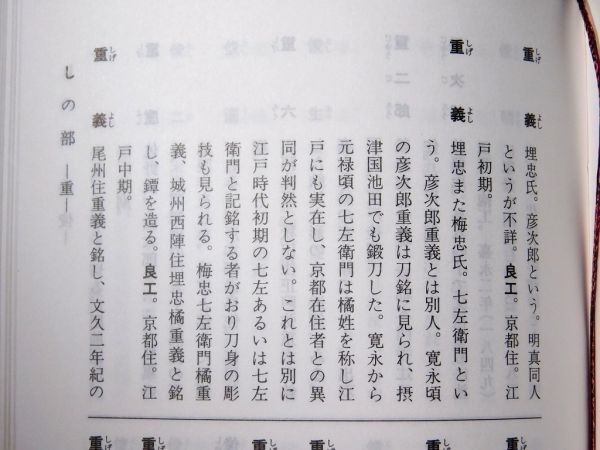 重義 埋忠氏。彦次郎という。明真同人
というが不詳。良工。京都住。江
戸初期。
重義 埋忠また梅忠氏。七左衛門とい
う。彦次郎重義とは別人。寛永頃
の彦次郎重義は刀銘に見られ、摂
津国池田でも鍛刀した。寛永から
元禄頃の七左衛門は橘姓を称し江
戸にも実在し、京都在住者との異
同が判然としない。これとは別に
江戸時代初期の七左あるいは七左
衛門と記銘する者がおり刀身の彫
技も見られる。梅忠七左衛門橘重
義、城州西陣住埋忠橘重義と銘
し、鐔を造る。良工。京都住。江
戸中期。
重義 尾州住重義と銘し、文久二年紀の
しの部 ―重―